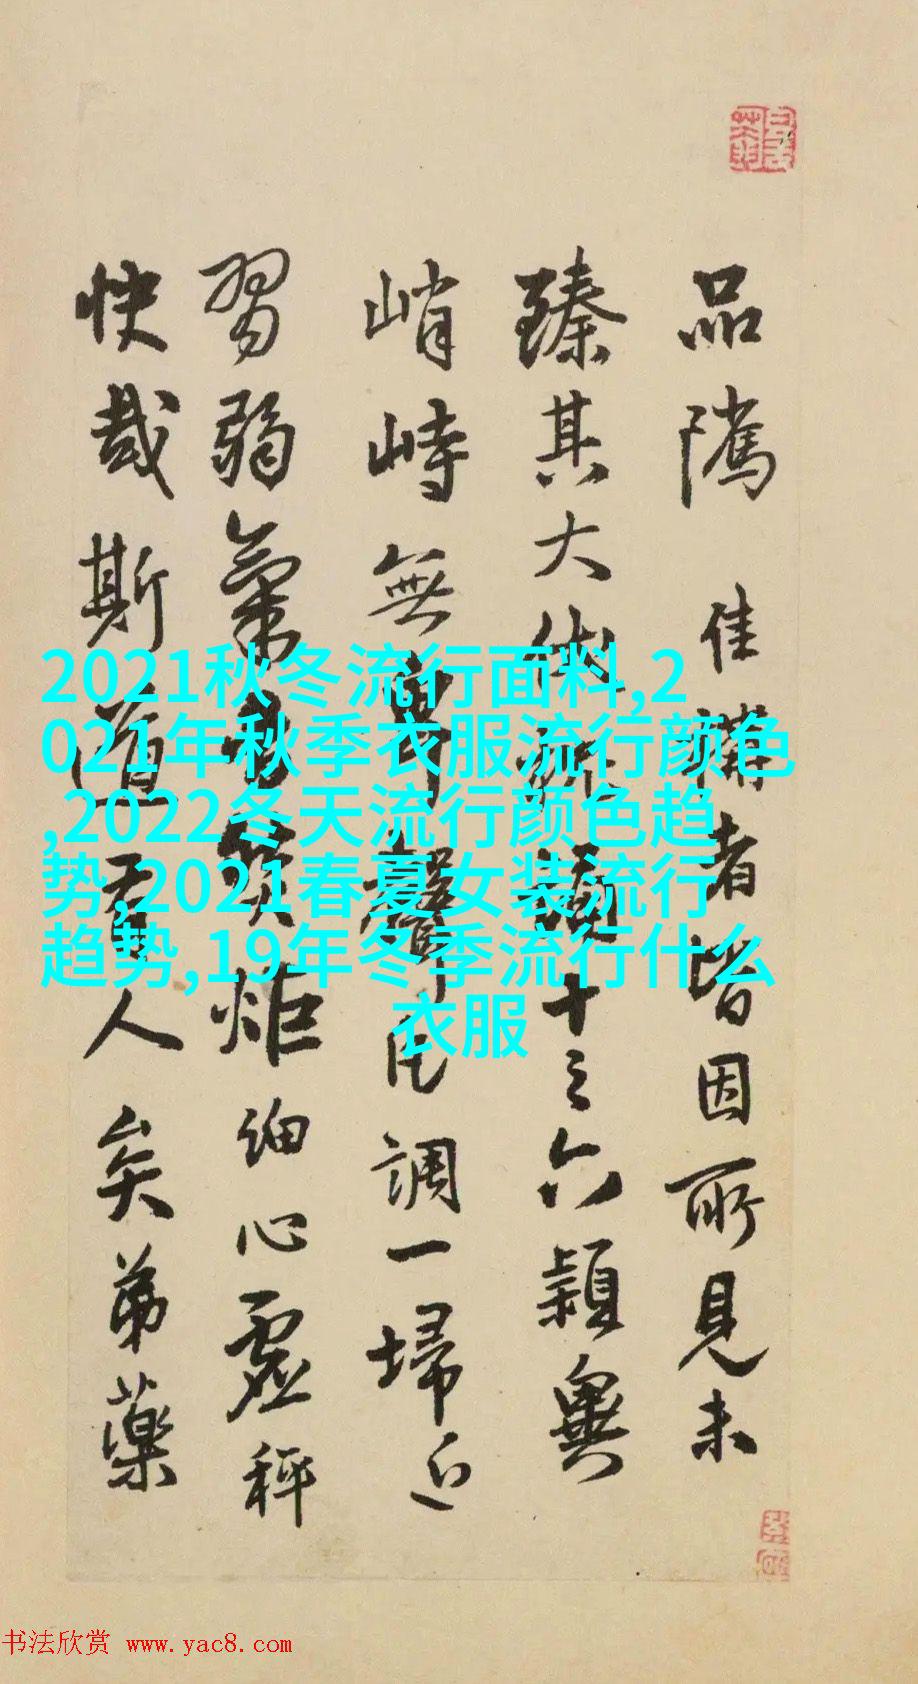 品隲佳構者皆因所見未
臻其大
十三六穎與
峭峙無
調一埽近
習弱氣
炬細心虛秤
快哉斯道有人矣弟藥
2021秋冬流行面料,2
021年秋季衣服流行颜色
,2022冬天流行颜色趋
势,2021春夏女装流行
趋势,19年冬季流行什么
衣服
书法欣赏 www.yac8.com